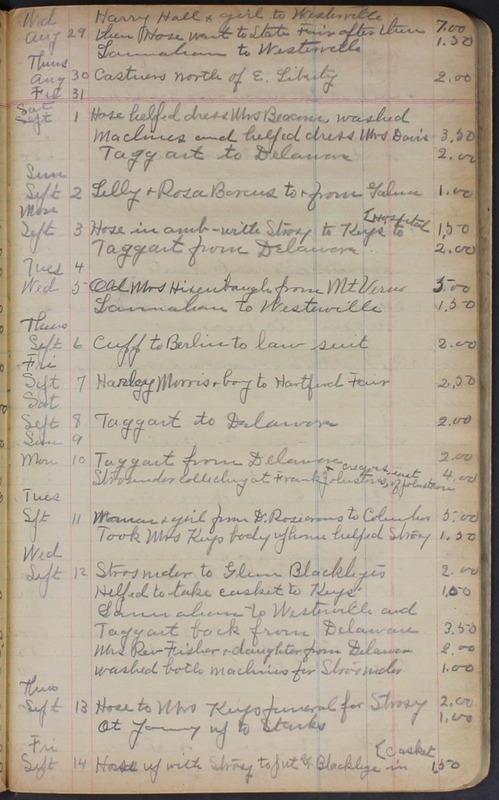 Wed Harry Hall & girl to Westerville
Aug 29 then Hose went to State Fair after them 7.00
Lannahan to Westerville 1.50
Thurs
Aug 30 Castners north of E. Liberty 2.00
Fri 31
Sat
Sept 1 Hose helped dress Mrs Beacom, washed
Machines and helped dress Mrs Davis 3.50
Taggart to Delaware 2.00
Sun
Sept 2 Lilly & Rosa Barcus to & from Galena 1.00
Mon
[Hospital
Sept 3 Hose in amb- with Strosy to Keys to 1.50
Taggart from Delaware 2.00
Tues 4
Wed 5 Old Mrs Hisenbaugh from Mt Vernon 5.00
Lannahan to Westerville 1.50
Thurs
Sept 6 Cuff to Berlin to law suit 2.00
Fri
Sept 7 Harley Morris & boy to Hartford Fair 2.50
Sat
Sept 8 Taggart to Delaware 2.00
Sun 9
Mon 10 Taggart from Delaware 2.00
Strosnider at Frank Johnstons, of Johnstown 4.00
Tues
Sft 11 Woman & girl from D. Rosecrans to Columbus 5.00
Took Mrs Keys body up home helped Strosy 1.50
Wed
Sept 12 Strosnider to Glenn Blackleges 2.00
Helped to take casket to Keys' 1.50
Lannahan to Westerville and
Taggart back from Delaware 3.50
Mrs Rev Fisher & daughter from Delaware 2.00
washed both machines for Strosnider 1.00
Thurs
Sept 13 Hose to Mrs Keys funeral for Strosy 2.00
up to Starks 1.00
Fri
[Casket
Sept 14 Hose up with Strosy to put Blacklege in 1.50